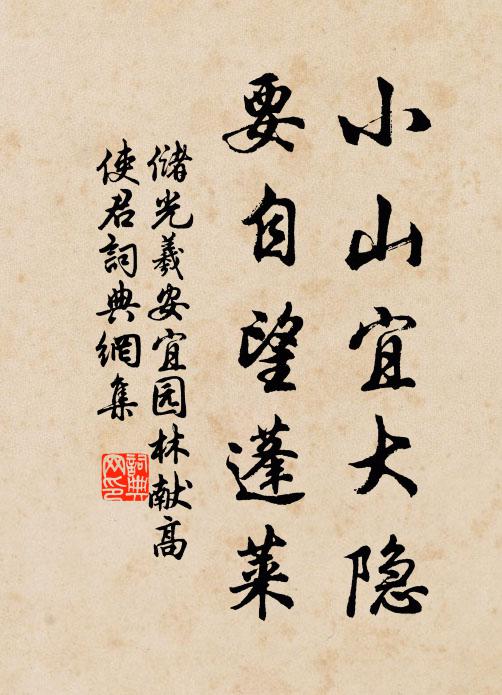 小山宜大隐
要自望蓬莱
储光羲安宜园林献高
使君詞典網集
詞典
网印